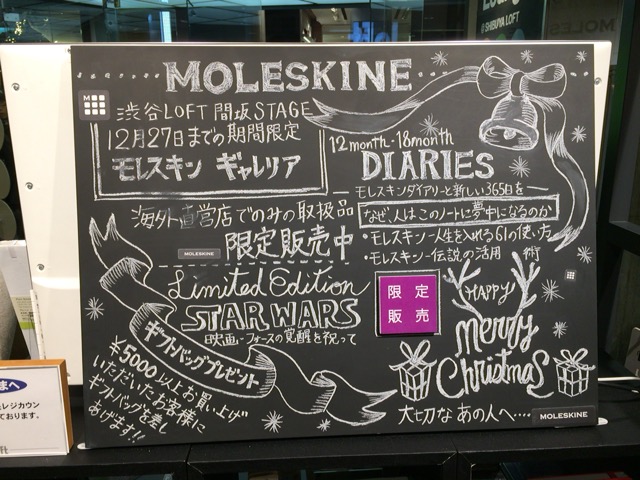 @ SHIBUYA LOFT
MOLES
MOLESKINE
M
渋谷LOFT 間坂STAGE
12月27日までの期間限定
モレスキン ギャレリア
海外直営店でのみの取扱品
MOLESKINE
限定販売中
Limited Edition
STAR WARS
映画・フォースの覚醒を祝って
ギフトバッグプレゼント
¥5000以上お買い上げ
いただいたお客様に
ギフトバッグを差し
あげます!!
12month・18month
DIARIES
モレスキンダイアリーと新しい365日を
なぜ、人はこのノートに夢中になるのか
・モレスキン 人生を入れる61の使い方
・モレスキン 伝説の活用術
限定
販売
HAPPY
Merry
Christmas
大切な あの人へ・・・・
MOLESKINE
まへ
レジカウン
ております。
ft